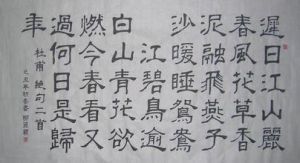 遲日江山麗
春風花草香
泥融飛燕子
沙暖睡鴛鴦
江碧鳥逾
白山青花欲
燃今春看又
過何日是歸
年
杜甫 絕句二首